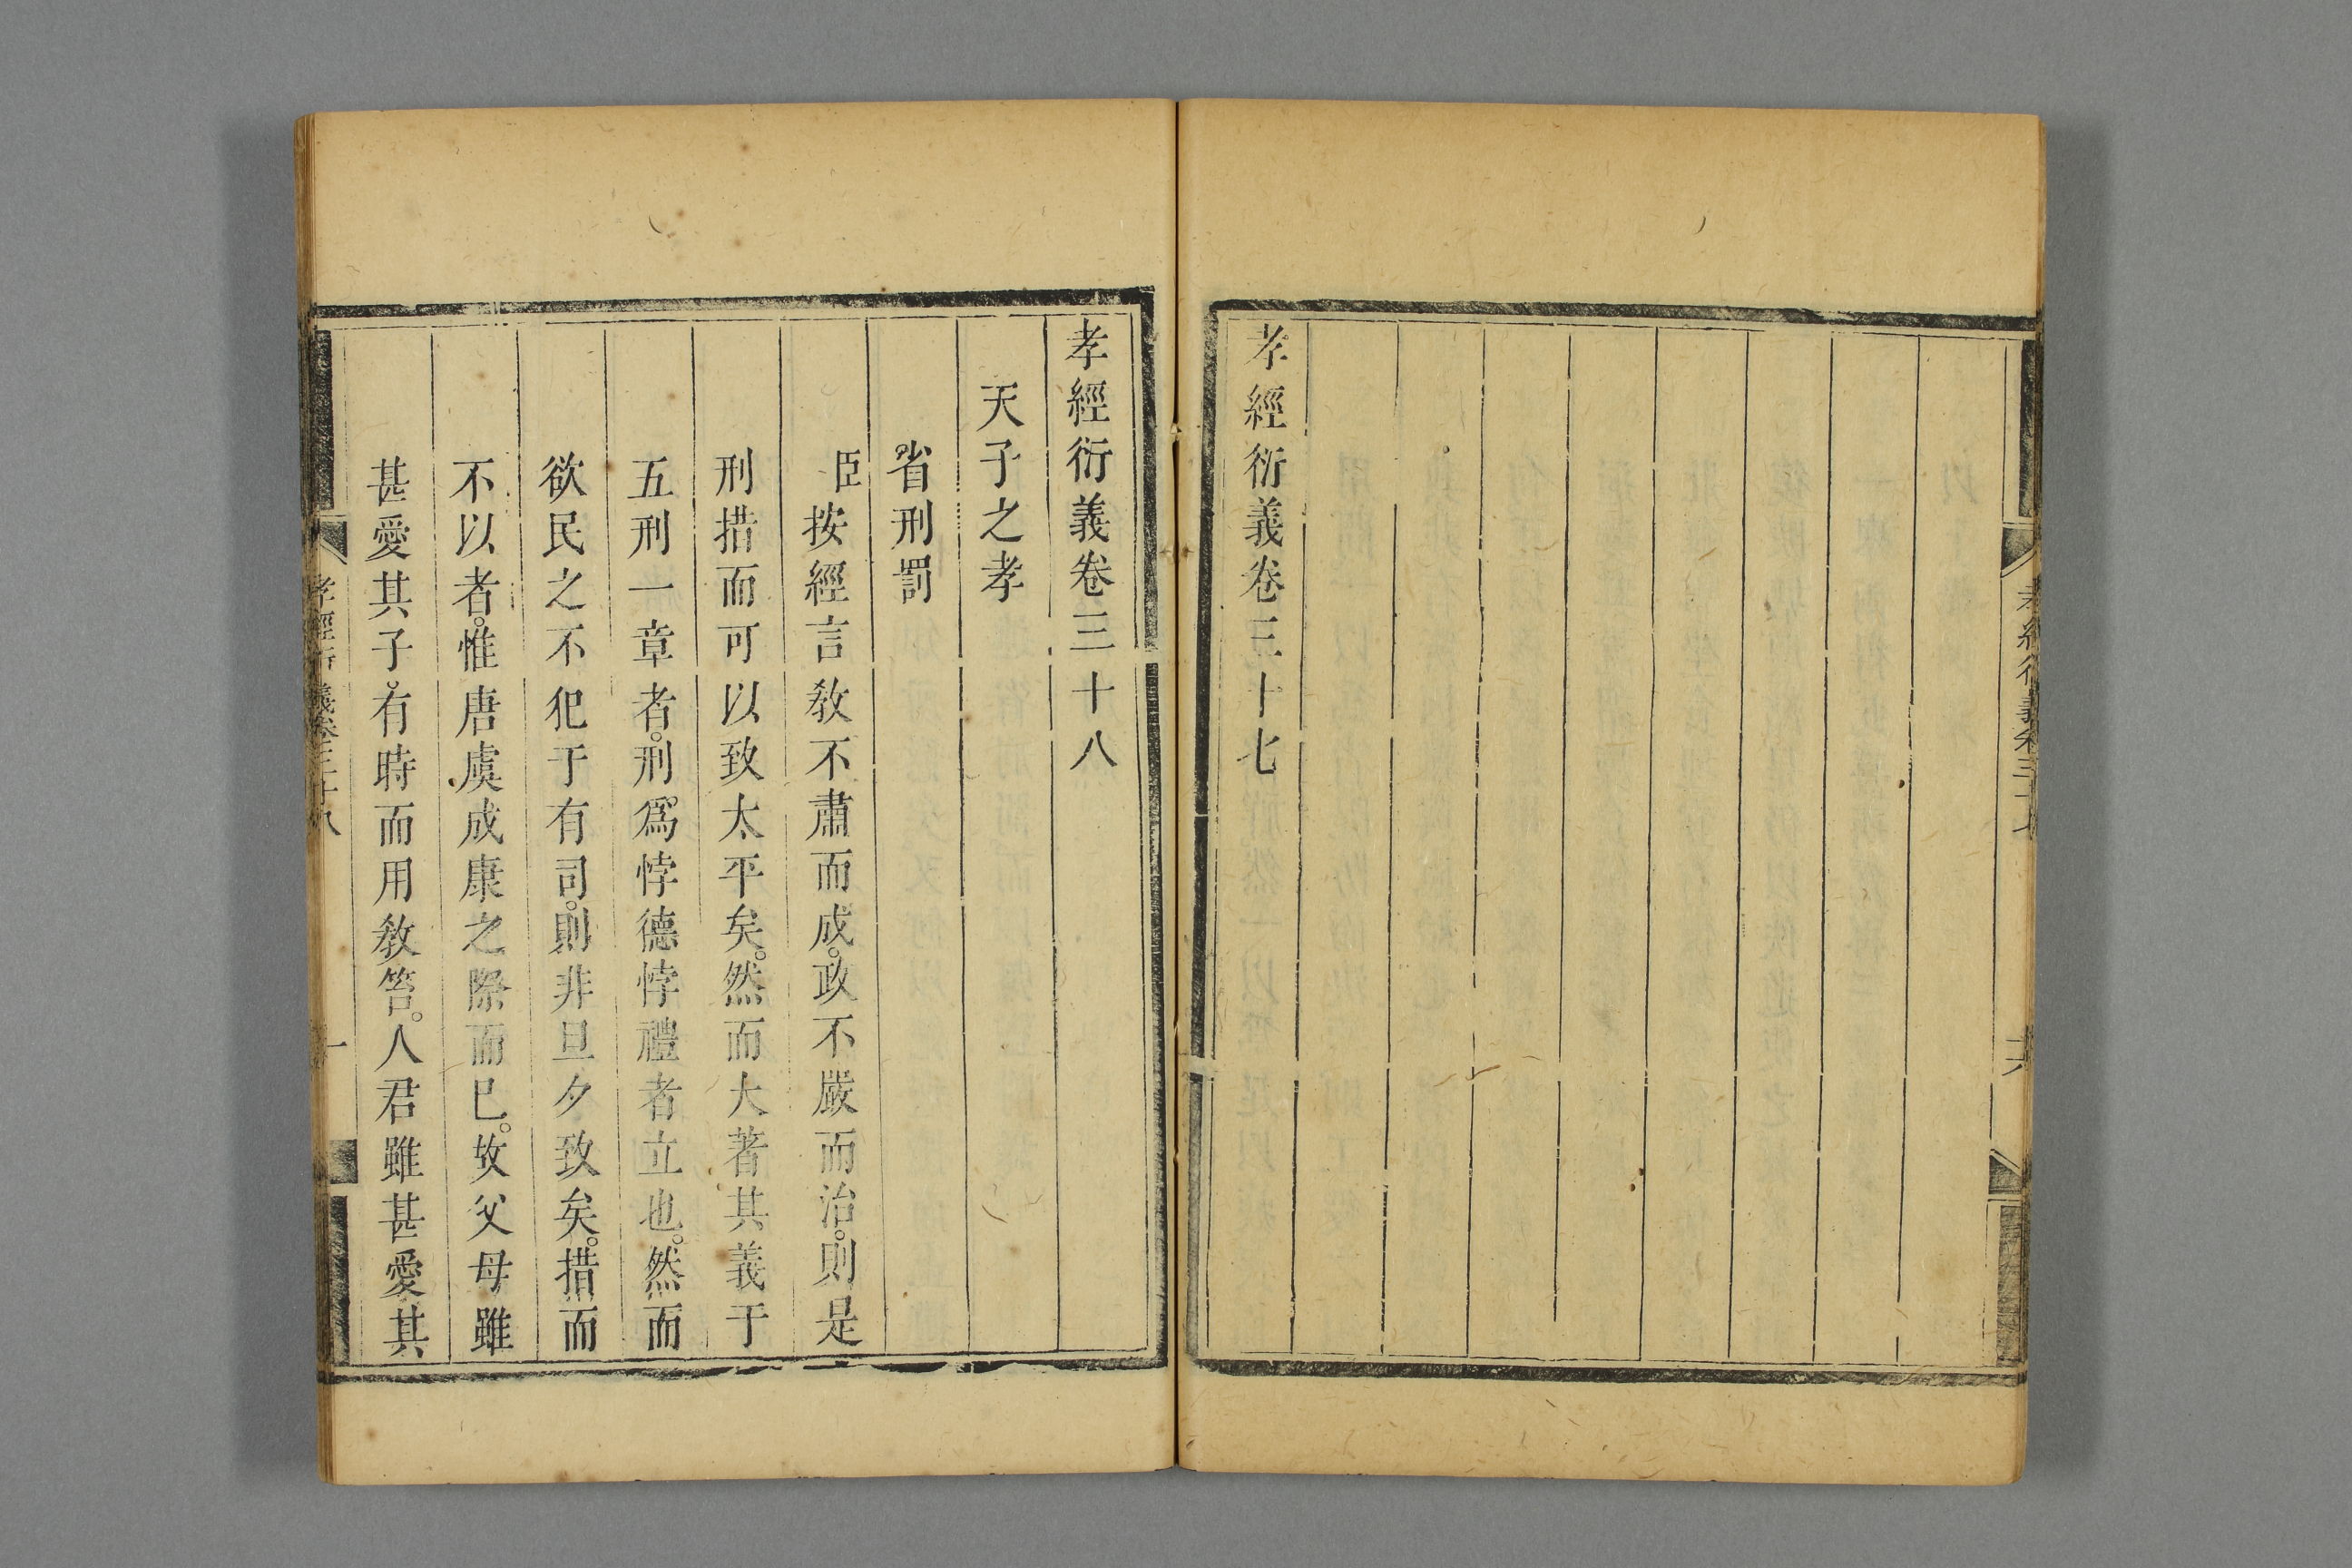 孝經衍義卷三十七
孝經衍義卷三十七
六
孝經衍義卷三十八
天子之孝
省刑罰
臣按經言敎不肅而成。政不嚴而治。則是
刑措而可以致太平矣。然而大著其義于
五刑一章者。刑爲悖德悖禮者立也。然而
欲民之不犯于有司。則非旦夕致矣。措而
不以者。惟唐虞成康之際而已。故父母雖
甚愛其子。有時而用敎笞。人君雖甚愛其
孝經衍義卷三十八
一